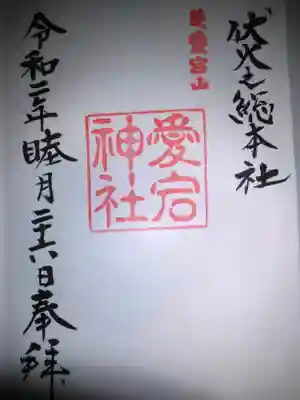 伏火之総本社
美愛宕山
愛宕
神社
令和二年睦月二十六日奉拜